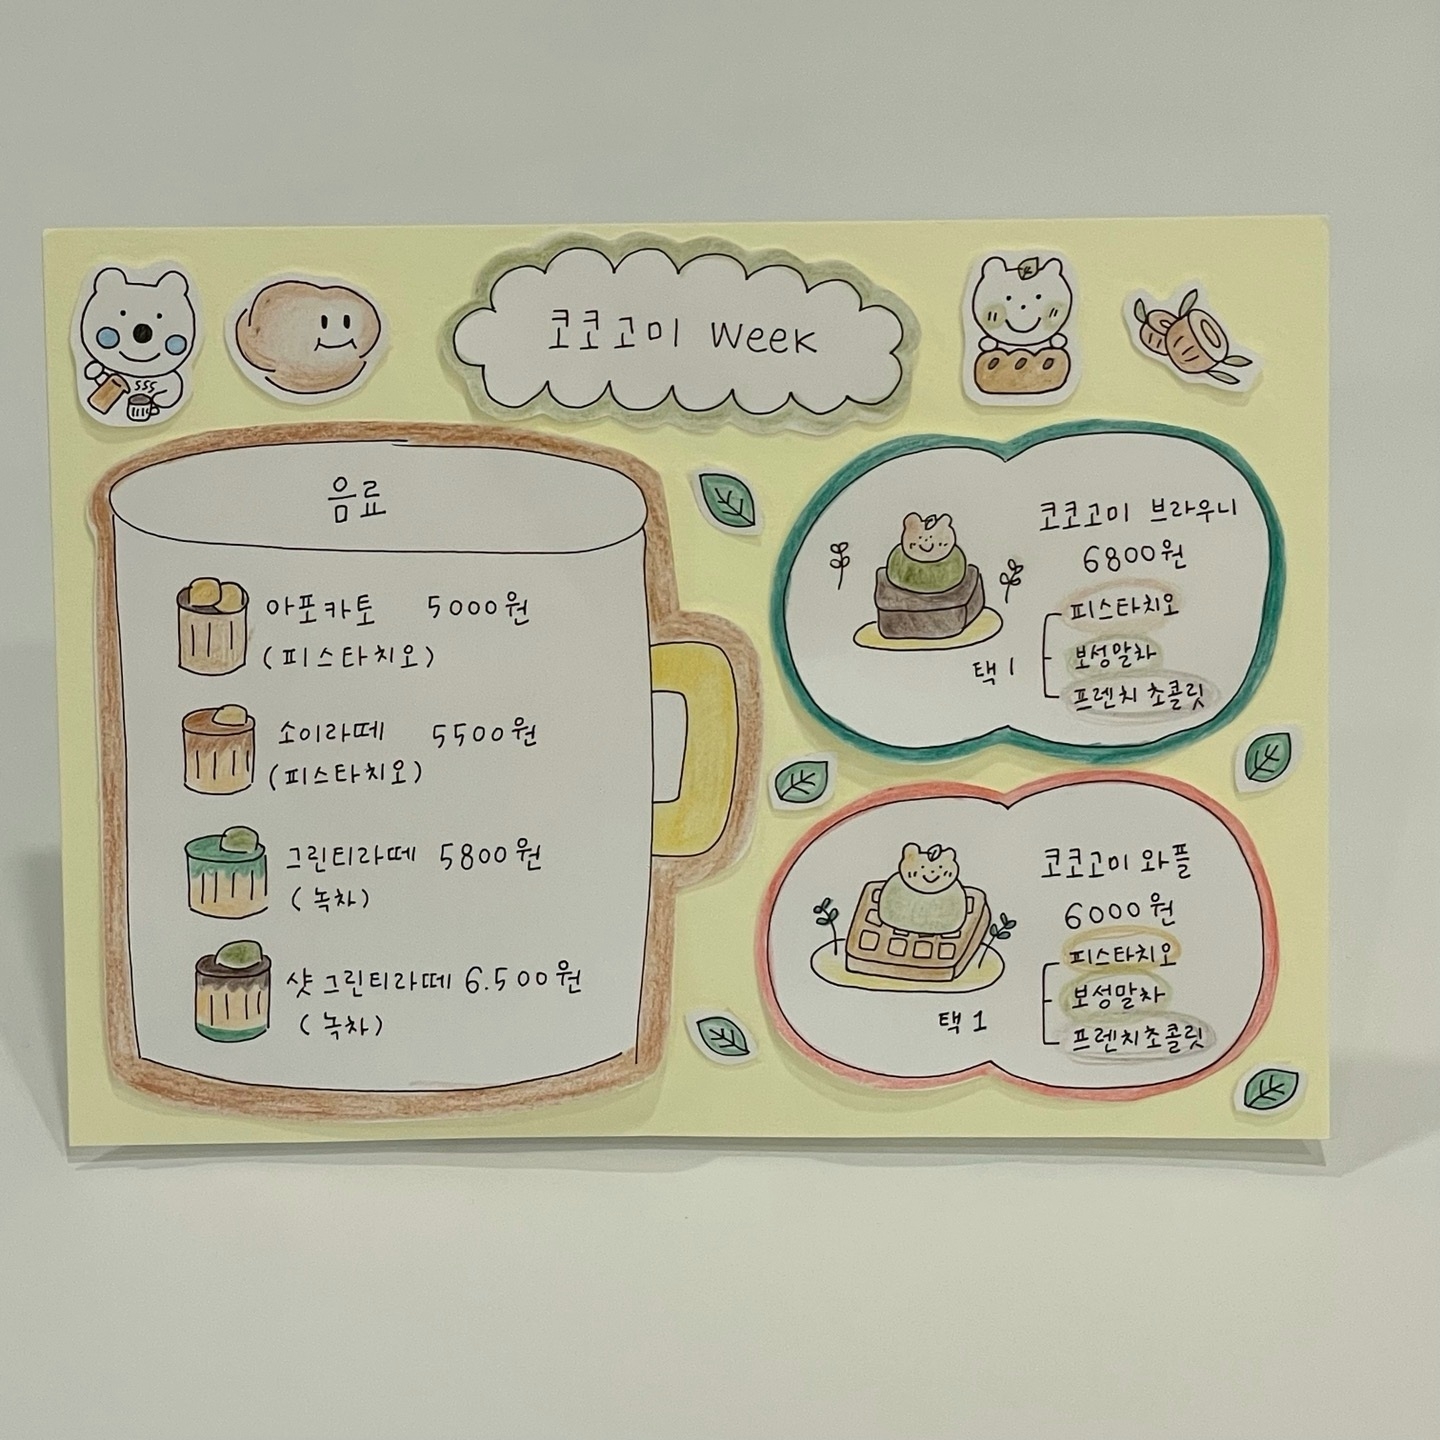 코코고미 Week
음료
아포카토 5000원
(피스타치오)
소이라떼 5500원
(피스타치오)
그린티라떼 5800원
(녹차)
샷 그린티라떼 6.500원
(녹차)
코코고미 브라우니
6800원
택 1
피스타치오
보성말차
프렌치 초콜릿
코코고미 와플
6000원
택 1
피스타치오
보성말차
프렌치초콜릿